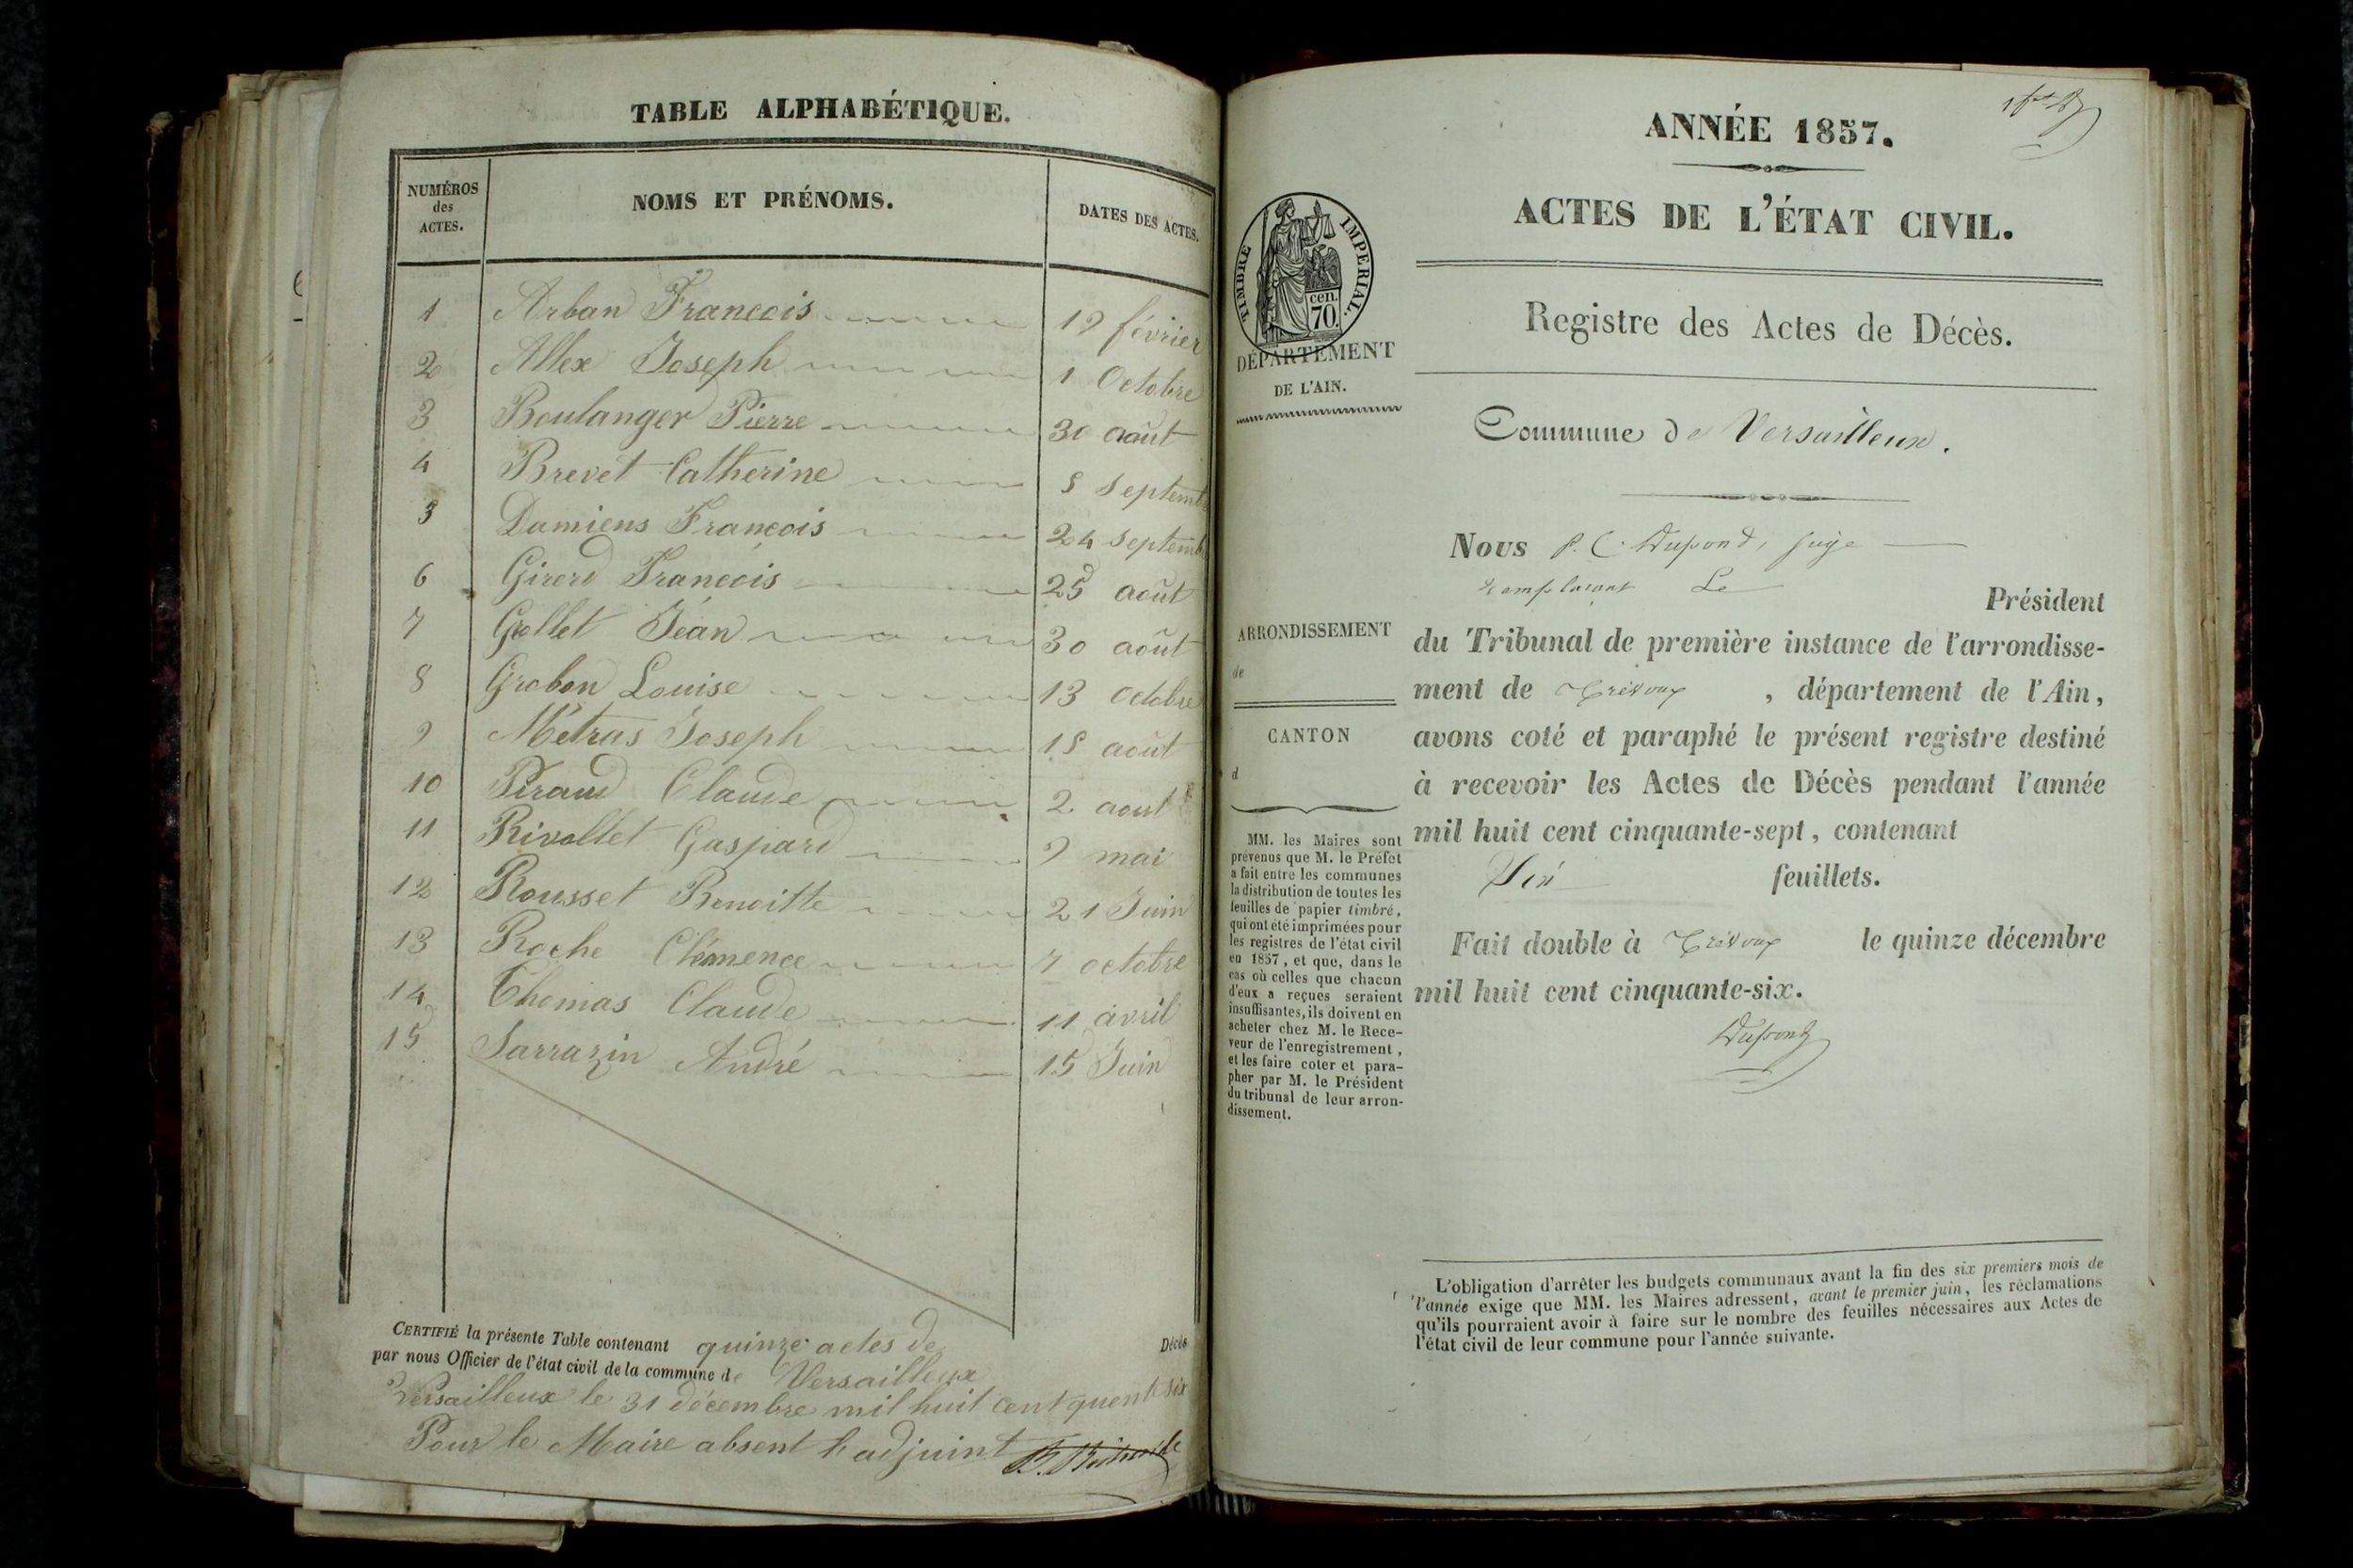 TABLE ALPHABÉTIQUE.
NUMÉROS des ACTES. NOMS ET PRÉNOMS. DATES DES ACTES.
1 Arban Francois 19 février
2 Allex Joseph 1 Octobre
3 Boulanger Pierre 30 août
4 Brevet Catherine 8 septemb
5 Damiens François 24 septemb
6 Girerd François 25 août
7 Gollet Jean 30 août
8 Grobon Louise 13 octobre
9 Métras Joseph 18 août
10 Peraud Claude 2 aout
11 Rivollet Gaspard 9 mai
12 Rousset Benoitte 21 Juin
13 Roche Clémence 7 octobre
14 Thomas Claude 11 avril
15 Sarrazin André 15 Juin
CERTIFIÉ la présente Table contenant quinze actes de Décès
par nous Officier de l'état civil de la commune de Versailleux
Versailleux le 31 décembre mil huit cent quent six
Pour le Maire absent l'adjoint
ANNÉE 1857.
ACTES DE L'ÉTAT CIVIL.
TIMBRE IMPERIAL.
70 cen.
DÉPARTEMENT
DE L'AIN.
Registre des Actes de Décès.
Commune de Versailleux.
Nous P. C. Dupond, juge
remplaçant Le Président
du Tribunal de première instance de l'arrondisse-
ment de Trévoux, département de l'Ain,
avons coté et paraphé le présent registre destiné
à recevoir les Actes de Décès pendant l'année
mil huit cent cinquante-sept, contenant
Six feuillets.
Fait double à Trévoux le quinze décembre
mil huit cent cinquante-six.
Dupond
ARRONDISSEMENT
de
CANTON
d
MM. les Maires sont
prévenus que M. le Préfet
a fait entre les communes
la distribution de toutes les
feuilles de papier timbré,
qui ont été imprimées pour
les registres de l'état civil
en 1857, et que, dans le
cas où celles que chacun
d'eux a reçues seraient
insuffisantes, ils doivent en
acheter chez M. le Rece-
veur de l'enregistrement,
et les faire coter et para-
pher par M. le Président
du tribunal de leur arron-
dissement.
L'obligation d'arrêter les budgets communaux avant la fin des six premiers mois de
l'année exige que MM. les Maires adressent, avant le premier juin, les réclamations
qu'ils pourraient avoir à faire sur le nombre des feuilles nécessaires aux Actes de
l'état civil de leur commune pour l'année suivante.